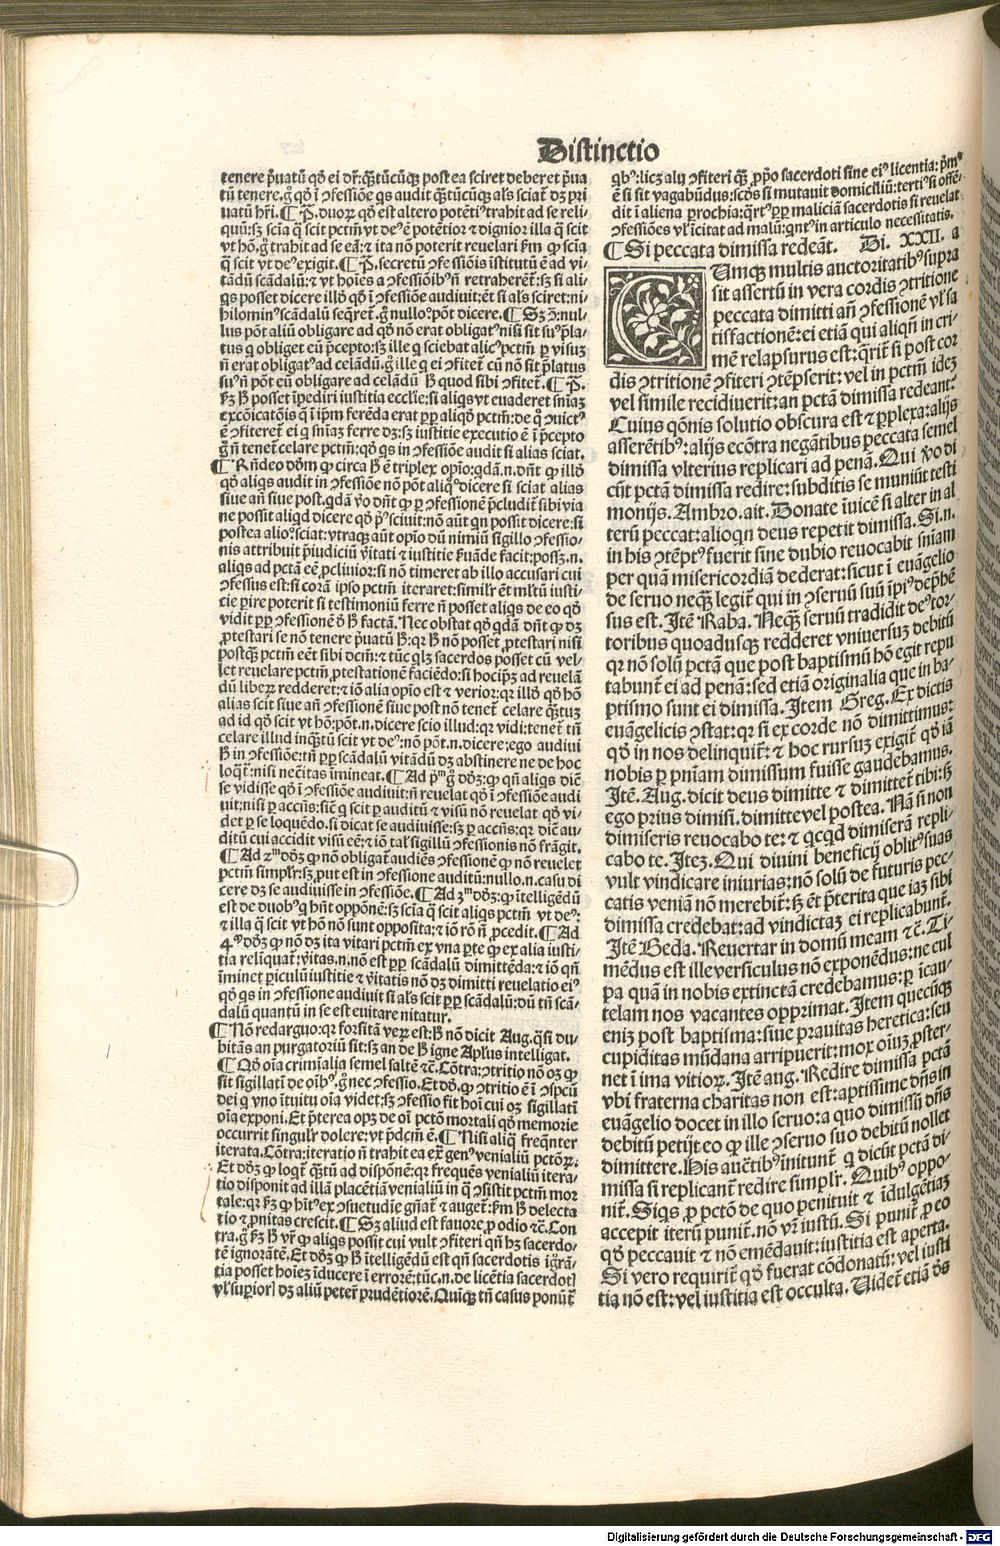 Distinctio
tenere p̄uatū qd̄ ei dr̄: q̄ꝫtūcūqꝫ postea sciret deberet p̄ua
tū tenere. ḡ qd̄ ī ꝯfessiōe qs audit q̄ꝫtūcūqꝫ al's sciat̄ dꝫ pri
uatū hr̄i. ¶ P̄. duoꝝ qd̄ est altero potēti⁹ trahit ad se reli-
quū: sꝫ scīa q̄ scit pctm̄ vt de⁹ ē potētior ⁊ dignior illa q̄ scit
vt hō. ḡ trahit ad se eā: ⁊ ita nō poterit reuelari ẜm ꝙ scīa
q̄ scit vt de⁹ exigit. ¶ P̄. secretū ꝯfessiōis īstitutū ē ad vi-
tādū scādalū: ⁊ vt hoīes a ꝯfessiōib⁹ n̄ retraherent̄: sꝫ si ali-
qs posset dicere illd̄ qd̄ ī ꝯfessiōe audiuit: ēt si al's sciret: ni-
hilomin⁹ scādalū seq̄ret̄. ḡ nullo⁰ pōt dicere. ¶ Sꝫ ꝯ: nul-
lus pōt aliū obligare ad qd̄ nō erat obligat⁹ nisi sit su⁹ p̄la-
tus q obliget eū p̄cepto: sꝫ ille q sciebat alic⁹ pctm̄ ꝑ visuꝫ
n̄ erat obligat⁹ ad celādū. ḡ ille q ei ꝯfitet̄ cū nō sit p̄latus
su⁹ n̄ pōt eū obligare ad celādū ꝗ quod sibi ꝯfitet̄. ¶ P̄.
ẜꝫ ꝗ posset īpediri iustitia ecclīe: si aliqs vt euaderet sn̄iaꝫ
excōicatōis q̄ ī ip̄m ferēda erat ꝑp aliqd̄ pctm̄: de q̊ ꝯuict⁹
ē ꝯfiteret̄ ei q sn̄iaꝫ ferre dꝫ: sꝫ iustitie executio ē ī p̄cepto
ḡ n̄ tenet̄ celare pctm̄: qd̄ qs in ꝯfessiōe audit si alias sciat.
¶ Rn̄deo dōm ꝙ circa ꝗ ē triplex opīo: qdā. n. dn̄t ꝙ illd̄
qd̄ aliqs audit in ꝯfessiōe nō pōt aliq⁰ dicere si sciat alias
siue an̄ siue post. qdā v̊o dn̄t ꝙ ꝑ ꝯfessionē p̄cludit̄ sibi via
ne possit aliqd dicere qd̄ p⁹ sciuit: nō aūt qn possit dicere: si
postea alio⁰ sciat: vtraqꝫ aūt opīo dū nimiū sigillo ꝯfessio-
nis attribuit p̄iudiciū v̄itati ⁊ iustitie ẜuāde facit: possꝫ. n.
aliqs ad pctā eē ꝓcliuior: si nō timeret ab illo accusari cui
ꝯfessus est: si corā ipso pctm̄ iteraret: similr̄ ēt ml'tū iusti-
cie ꝑire poterit si testimoniū ferre n̄ posset aliqs de eo qd̄
vidit ꝑp ꝯfessionē d̄ ꝗ factā. Nec obstat qd̄ qdā dn̄t ꝙ dꝫ
ꝓtestari se nō tenere p̄uatū ꝗ: qꝛ ꝗ nō posset ꝓtestari nisi
postq̄ꝫ pctm̄ eēt sibi dcm̄: ⁊ tūc qlꝫ sacerdos posset cū vel-
let reuelare pctm̄ ꝓtestationē faciēdo: si hoc ip̄ꝫ ad reuelā
dū liberꝫ redderet: ⁊ iō alia opīo est ⁊ verior: qꝛ illd̄ qd̄ hō
alias scit siue an̄ ꝯfessionē siue post nō tenet̄ celare q̄ꝫtuꝫ
ad id qd̄ scit vt hō: pōt. n. dicere scio illud: qꝛ vidi: tenet̄ tn̄
celare illud inq̄ꝫtū scit vt de⁹: nō pōt. n. dicere: ego audiui
ꝗ in ꝯfessiōe: tn̄ ꝑp scādalū vitādū dꝫ abstinere ne de hoc
loqt̄: nisi nec̄itas īmineat. ¶ Ad p̄mꝫ ḡ dd̄ꝫ: ꝙ qn̄ aliqs dic̄
se vidisse qd̄ ī ꝯfessiōe audiuit: n̄ reuelat qd̄ ī ꝯfessiōe audi
uit: nisi ꝑ accn̄s: sic̄ q scit ꝑ auditū ⁊ visū nō reuelat qd̄ vi-
det ꝑ se loquēdo. si dicat se audiuisse: sꝫ ꝑ accn̄s: qꝛ dic̄ au-
ditū cui accidit visū eē: ⁊ iō tal' sigillū ꝯfessionis nō frāgit.
¶ Ad 2ᵐ dd̄ꝫ ꝙ nō obligat̄ audiēs ꝯfessionē ꝙ nō reuelet
pctm̄ simplr̄: sꝫ ꝓut est in ꝯfessione auditū: nullo. n. casu di
cere dꝫ se audiuisse in ꝯfessiōe. ¶ Ad 3ᵐ dd̄ꝫ: ꝙ ītelligēdū
est de duob⁹ q̄ hn̄t oppōne: sꝫ scīa q̄ scit aliqs pctm̄ vt de⁹:
⁊ illa q̄ scit vt hō nō sunt opposita: ⁊ iō rō n̄ ꝓcedit. ¶ Ad
4⁹ dd̄ꝫ ꝙ nō dꝫ ita vitari pctm̄ ex vna ꝑte ꝙ ex alia iusti-
tia reliquat̄: v̄itas. n. nō est ꝑp scādalū dimittēda: ⁊ iō qn̄
īminet ꝑiculū iustitie ⁊ v̄itatis nō dꝫ dimitti reuelatio ei⁹
qd̄ qs in ꝯfessione audiuit si al's scit ꝑp scādalū: dū tn̄ scā-
dalū quantū in se est euitare nitatur.
¶ Nō redarguo: qꝛ forsitā verꝫ est: ꝗ nō dicit Aug. q̄si du-
bitās an purgatoriū sit: sꝫ an de ꝗ igne Apl'us intelligat.
¶ Qd̄ oīa crimīalia semel saltē ⁊c̄. Cōtra: ꝯtritio nō oꝫ ꝙ
sit sigillatī de oīb⁹. ḡ nec ꝯfessio. Et dd̄. ꝙ ꝯtritio ē ī ꝯspcū
dei q vno ītuitu oīa videt: sꝫ ꝯfessio fit hoī cui oꝫ sigillatī
oīa exponi. Et p̄terea opꝫ de oī pctō mortali qd̄ memorie
occurrit singulr̄ dolere: vt p̄dcm̄ ē. ¶ Nisi aliq̄ freq̄nter
iterata. Cōtra: iteratio n̄ trahit ea ex̄ gen⁹ venialiū pctōꝝ.
Et dd̄ꝫ ꝙ loqt̄ q̄ꝫtū ad dispōnē: qꝛ frequēs venialiū itera-
tio disponit ad illā placētiā venialiū in q̄ ꝯsistit pctm̄ mor
tale: qꝛ ẜꝫ ꝙ hīt⁹ ex ꝯsuetudīe gn̄at̄ ⁊ auget̄: ẜm ꝗ delecta
tio ⁊ ꝓnitas crescit. ¶ Sꝫ aliud est fauore ꝓ odio ⁊c̄. Con
tra. ḡ ẜꝫ ꝗ vr̄ ꝙ aliqs possit cui vult ꝯfiteri qn̄ hꝫ sacerdo-
tē ignorātē. Et dd̄ꝫ ꝙ ꝗ ītelligēdū est qn̄ sacerdotis igrā-
tia posset hoīeꝫ īducere ī errorē: tūc. n. de licētia sacerdot̄
vl' superior̄ dꝫ aliū petere prudētiorē. Quīqꝫ tn̄ casus ponūt̄
qb⁹: licꝫ alij ꝯfiteri q̄ꝫ ꝓpo sacerdoti sine ei⁹ licentia: p̄m⁹
ē si sit vagabūdus: scd̄s si mutauit domiciliū: terti⁹ si offē-
dit ī aliena ꝑrochia: q̄rt⁹ ꝑp maliciā sacerdotis si reuelat
ꝯfessiōes vl' īcitat ad malū: qnt⁹ in articulo necessitatis.
¶ Si peccata dimissa redeāt. Di. XXII. a
CUmqꝫ multis auctoritatib⁹ supra
sit assertū in vera cordis ꝯtritione
peccata dimitti an̄ ꝯfessionē vl' sa
tisfactionē: ei etiā qui aliqn̄ in cri-
mē relapsurus est: q̄rit̄ si post cor
dis ꝯtritionē ꝯfiteri ꝯtēpserit: vel in pctm̄ ideꝫ
vel simile recidiuerit: an pctā dimissa redeant?
Cuius qōnis solutio obscura est ⁊ ꝑplexa: alijs
asserētib⁹: alijs ecōtra negātibus peccata semel
dimissa vlterius replicari ad penā. Qui v̊o di
cūt pctā dimissa redire: subditis se muniūt testi
monijs. Ambro. ait. Donate īuicē si alter in al
terū peccat: alioqn deus repetit dimissa. Si. n.
in his ꝯtēpt⁹ fuerit sine dubio reuocabit sn̄iam
per quā misericordiā dederat: sicut ī euāgelio
de seruo neq̄ꝫ legit̄ qui in ꝯseruū suū īpi⁹ dep̄hē
sus est. Itē Raba. Neq̄ꝫ seruū tradidit de⁹ tor-
toribus quoadusqꝫ redderet vniuersuꝫ debitū
qꝛ nō solū pctā que post baptismū hō egit repu
tabunt̄ ei ad penā: sed etiā originalia que in ba-
ptismo sunt ei dimissa. Item Greg. Ex dictis
euāgelicis ꝯstat: qꝛ si ex corde nō dimittimus:
qd̄ in nos delinquit̄: ⁊ hoc rursuꝫ exigit̄ qd̄ iā
nobis ꝑ pn̄iam dimissum fuisse gaudebamus.
Itē. Aug. dicit deus dimitte ⁊ dimittet̄ tibi: sꝫ
ego prius dimisi. dimitte vel postea. Nā si non
dimiseris reuocabo te: ⁊ qcqd dimiserā repli-
cabo te. Iteꝫ. Qui diuini beneficij oblit⁹ suas
vult vindicare iniurias: nō solū de futuris pec-
catis veniā nō merebit̄: sꝫ ēt p̄terita que iaꝫ sibi
dimissa credebat: ad vindictaꝫ ei replicabunt̄.
Itē Beda. Reuertar in domū meam ⁊c̄. Ti-
mēdus est ille versiculus nō exponēdus: ne cul
pa quā in nobis extinctā credebamus: ꝑ īcau-
telam nos vacantes opprimat. Item quecūqꝫ
eniꝫ post baptisma: siue prauitas heretica: seu
cupiditas mūdana arripuerit: mox oīuꝫ ꝓster-
net ī ima vitioꝝ. Itē aug. Redire dimissa pctā
vbi fraterna charitas non est: aptissime dn̄s in
euāgelio docet in illo seruo: a quo dimissū dn̄s
debitū petijt eo ꝙ ille ꝯseruo suo debitū nollet
dimittere. His auc̄tib⁹ īnitunt̄ q dicūt pctā di-
missa si replicant̄ redire simplr̄. Quib⁹ oppo-
nit̄. Siqs ꝓ pctō de quo penituit ⁊ īdulgētiaꝫ
accepit iterū punit̄. nō vr̄ iustū. Si punit̄ ꝓ eo
qd̄ peccauit ⁊ nō emēdauit: iustitia est aperta.
Si vero requirit̄ qd̄ fuerat cōdonatū: vel iusti
tia nō est: vel iustitia est occulta. Videt̄ etiā d̄s
Digitalisierung gefördert durch die Deutsche Forschungsgemeinschaft - DFG